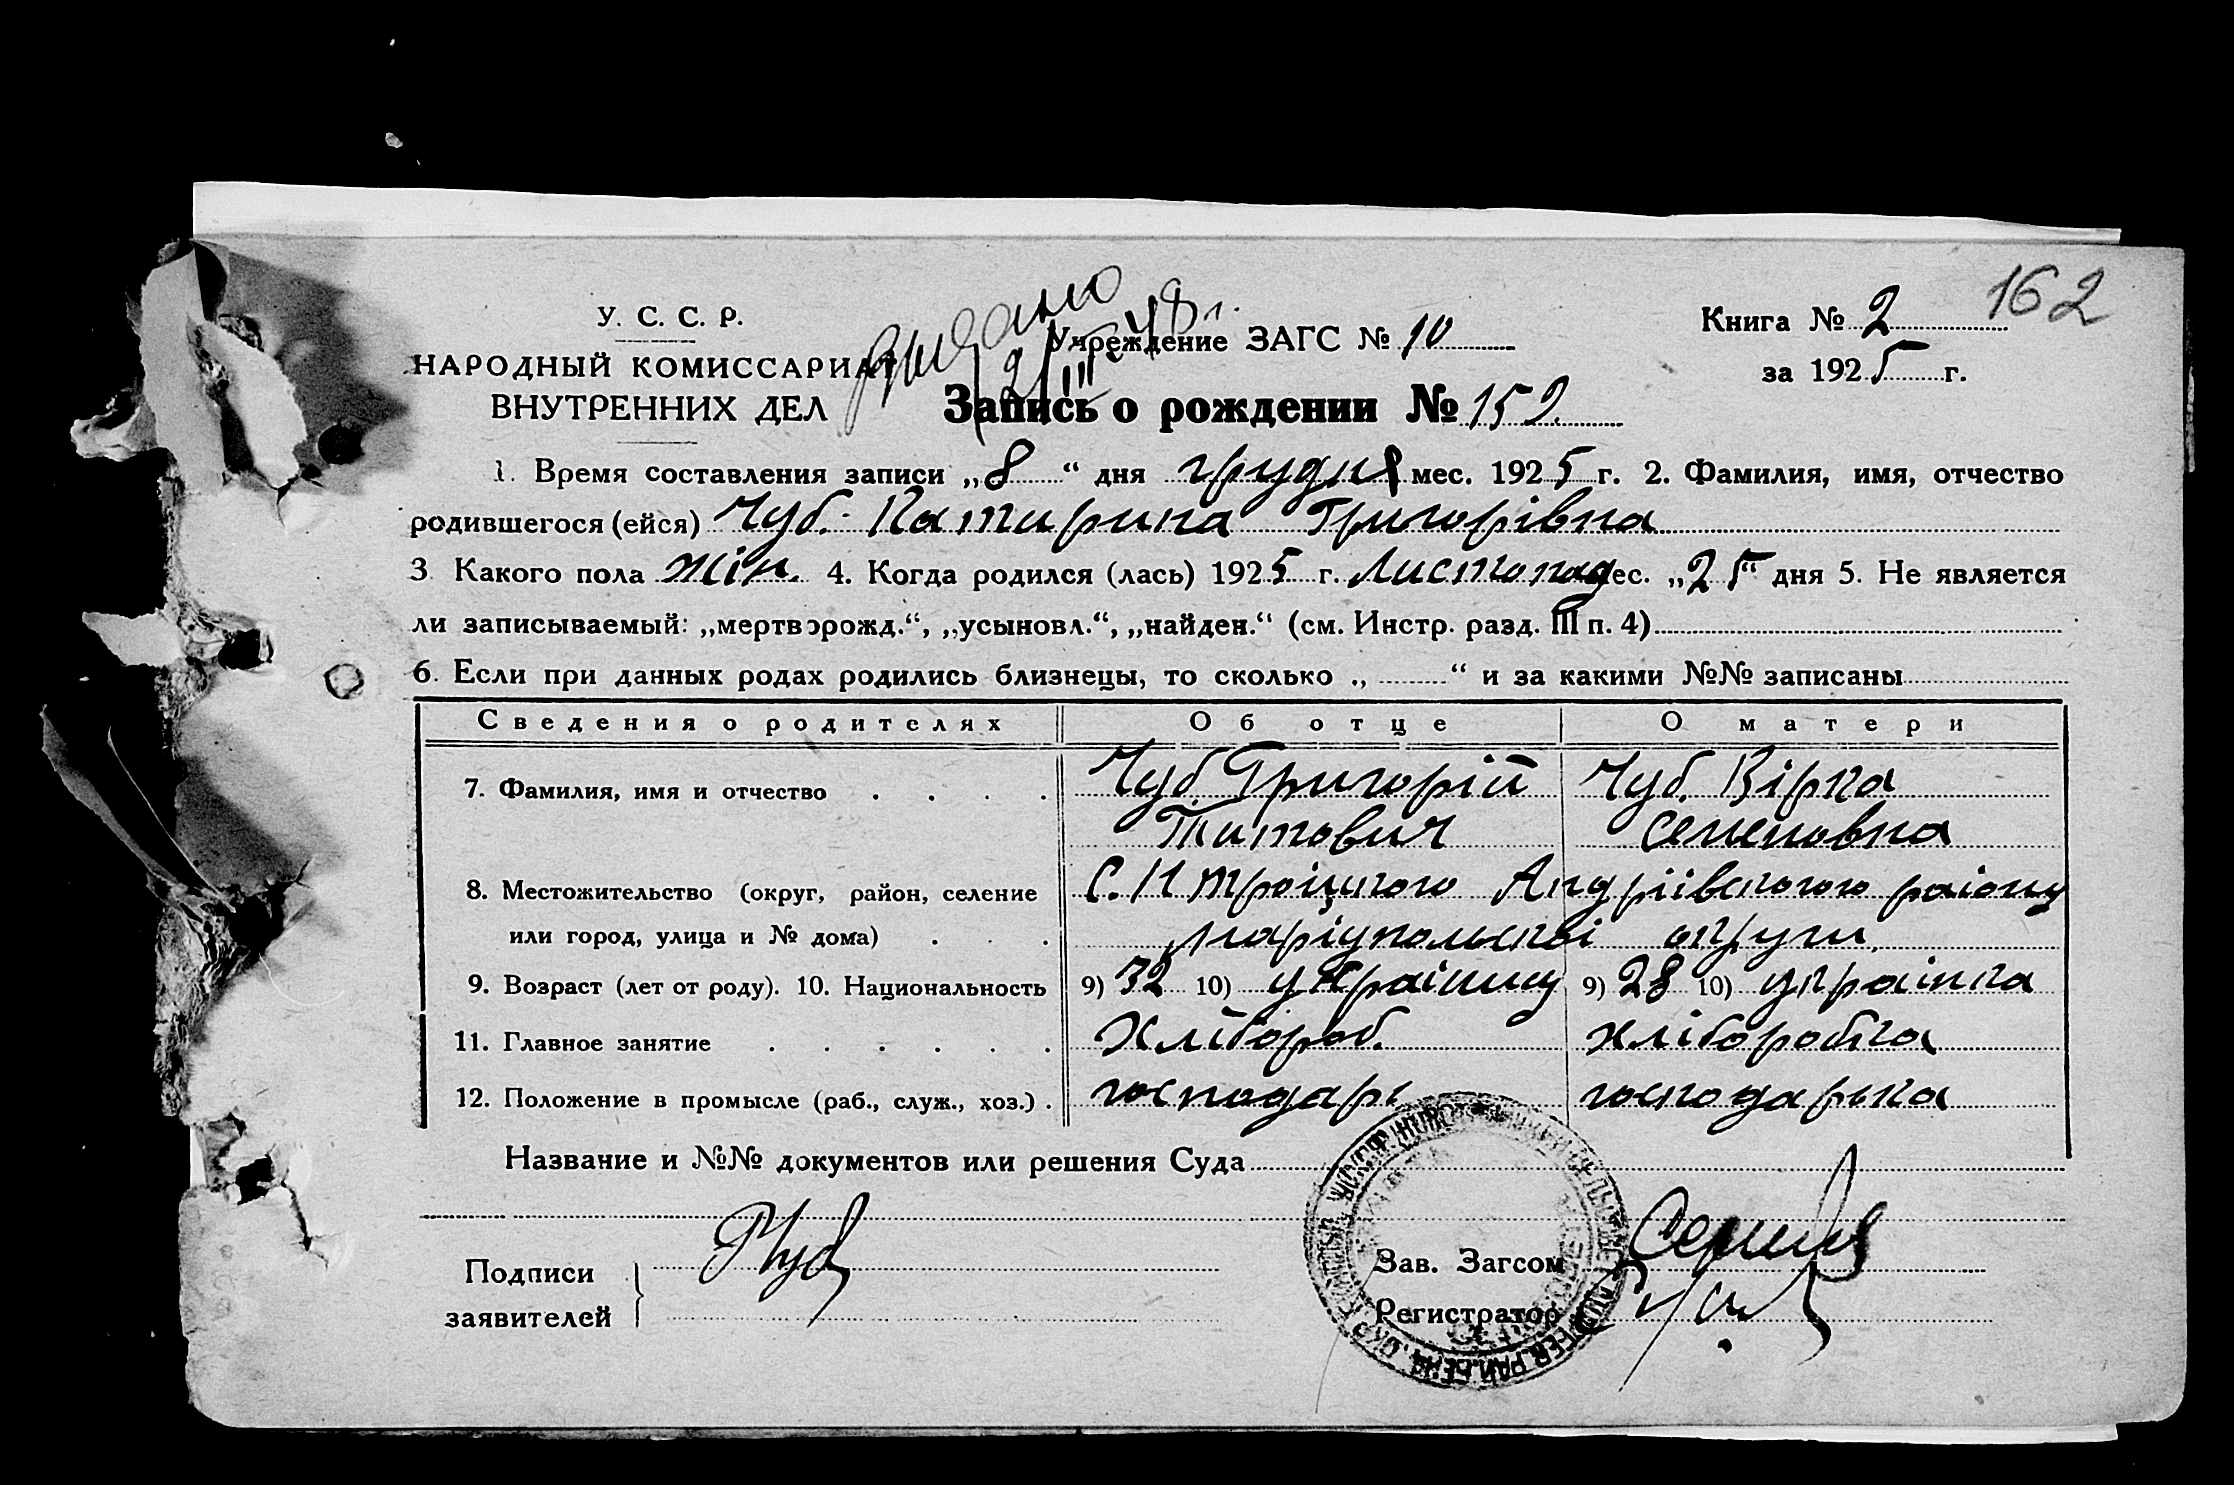 162
У. С. С. Р.
НАРОДНЫЙ КОМИССАРИАТ
ВНУТРЕННИХ ДЕЛ
видано
2/III 48 г.
Учреждение ЗАГС № 10
Книга № 2
за 1925 г.
Запись о рождении № 152
1. Время составления записи „8“ дня грудня мес. 1925 г. 2. Фамилия, имя, отчество
родившегося (ейся) Чуб. Катирина Григорівна
3 Какого пола жін. 4. Когда родился (лась) 1925 г. Листопад мес. „25“ дня 5. Не является
ли записываемый: „мертворожд.“, „усыновл.“, „найден.“ (см. Инстр. разд. III п. 4)
6. Если при данных родах родились близнецы, то сколько „ “ и за какими №№ записаны
Сведения о родителях Об отце О матери
7. Фамилия, имя и отчество Чуб. Григорій Чуб. Вірка
Титович Семеновна
8. Местожительство (округ, район, селение С. Н Троіцкого Андріівского раіону
или город, улица и № дома) маріупольскоі округи.
9. Возраст (лет от роду). 10. Национальность 9) 32 10) украінец 9) 28 10) украінка
11. Главное занятие Хлібороб. хліборобка
12. Положение в промысле (раб., служ., хоз.) господарь господарька
Название и №№ документов или решения Суда
Подписи
заявителей
Чуб
Зав. Загсом
Регистратор